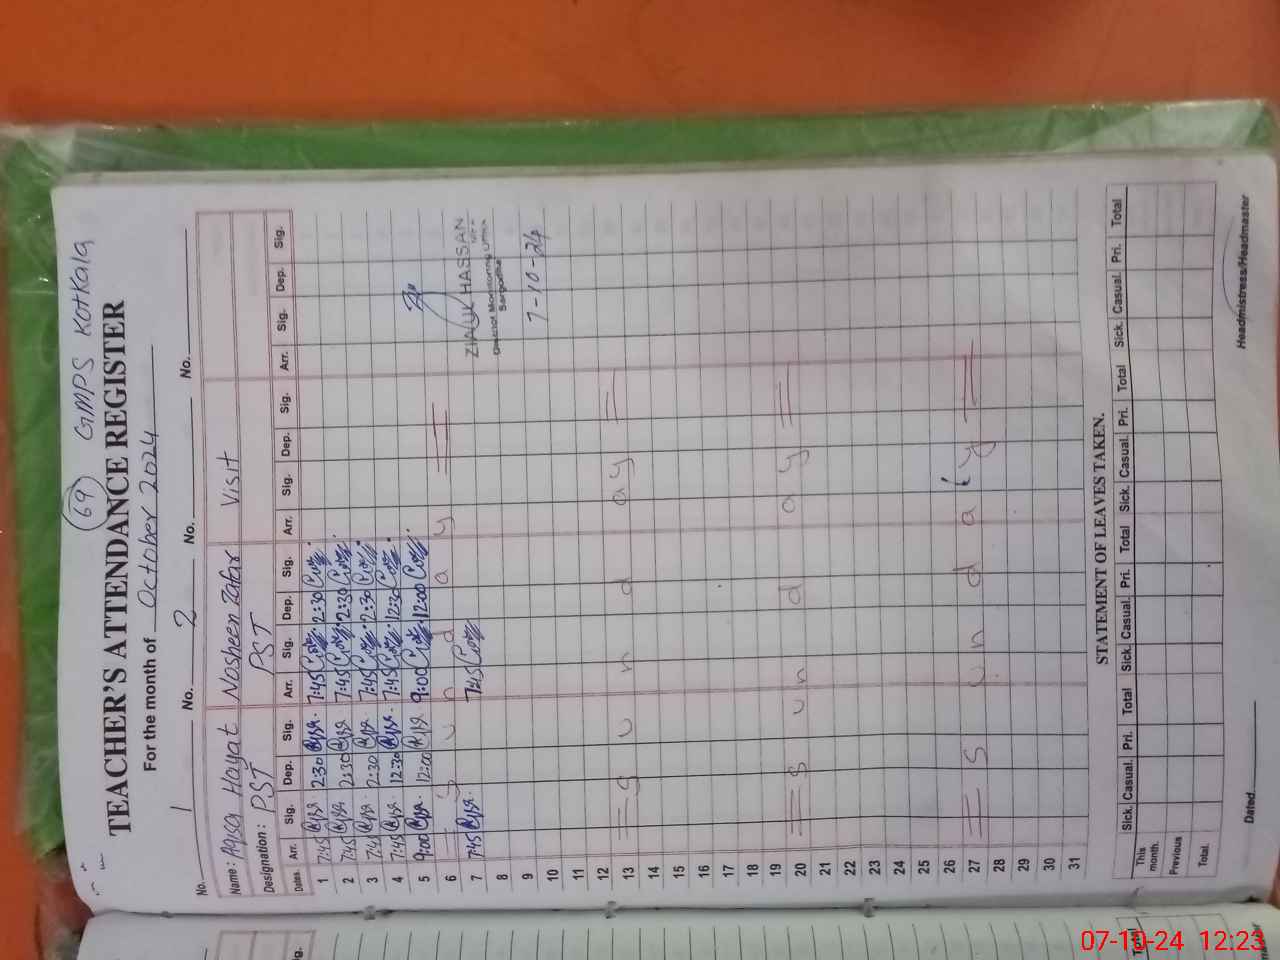 (69) GMPS Kotkala
TEACHER'S ATTENDANCE REGISTER
For the month of October 2024
No. 1 No. 2 No. No.
Name: Aqsa Hayat Nosheen Zafar Visit
Designation: PST PST
Dates. Arr. Sig. Dep. Sig. Arr. Sig. Dep. Sig. Arr. Sig. Dep. Sig. Arr. Sig. Dep. Sig.
1 7:45 2:30 7:45 2:30
2 7:45 2:30 7:45 2:30
3 7:45 2:30 7:45 2:30
4 7:45 12:30 7:45 12:30
5 9:00 12:00 9:00 12:00
6 Sunday
7 7:45 7:45 ZIA UL HASSAN
District Monitoring Officer
Sargodha
8
9 7-10-24
10
11
12
13 Sunday
14
15
16
17
18
19
20 Sunday
21
22
23
24
25
26
27 Sunday
28
29
30
31
STATEMENT OF LEAVES TAKEN.
Sick. Casual. Pri. Total Sick. Casual. Pri. Total Sick. Casual. Pri. Total Sick. Casual. Pri. Total
This month.
Previous
Total.
Dated Headmistress/Headmaster
Sig.
Total
07-10-24 12:23